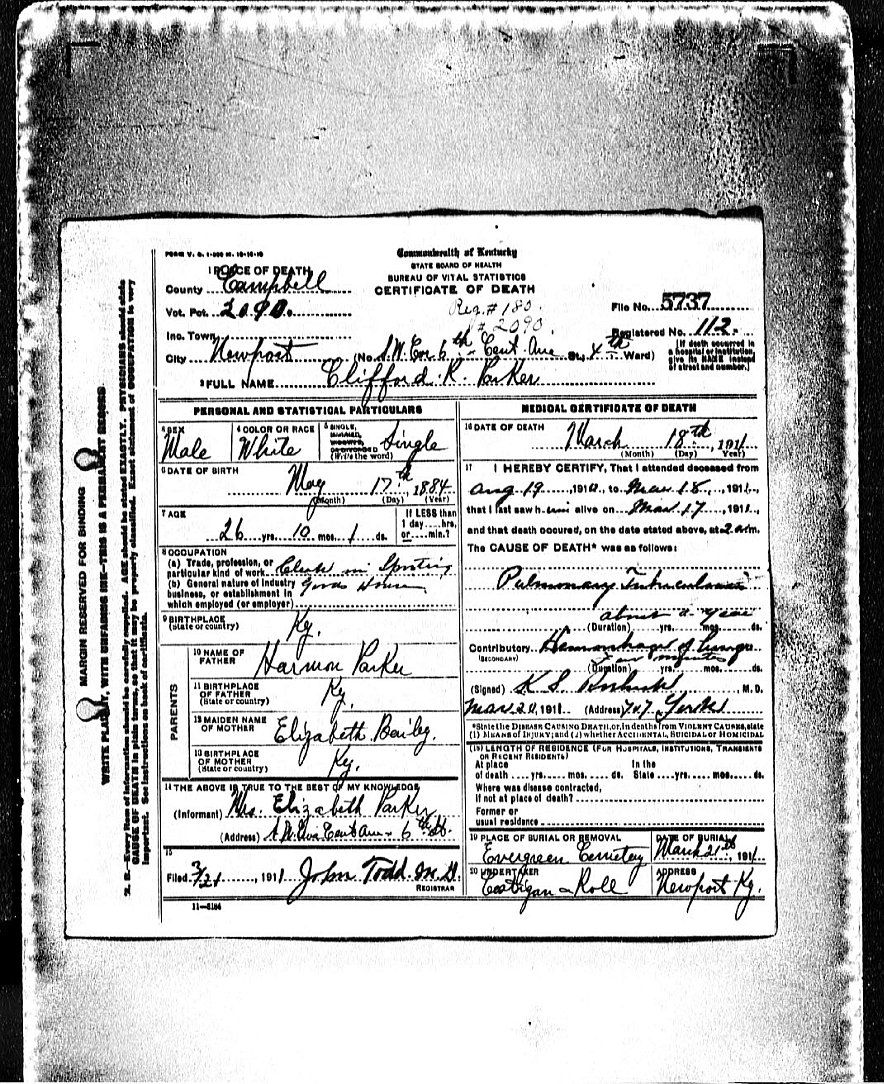 FORM V. S. 1-500 M. 10-10-10
Commonwealth of Kentucky
STATE BOARD OF HEALTH
BUREAU OF VITAL STATISTICS
CERTIFICATE OF DEATH
1 PLACE OF DEATH
County Campbell
Vot. Pct. 2090.
Reg. # 180.
# 2090
File No. 5737
Inc. Town
Registered No. 112.
City Newport (No. S.W. Cor 6th - Cent. Ave St., 4th Ward)
[If death occurred in a hospital or institution, give its NAME instead of street and number.]
2 FULL NAME Clifford. R. Parker
PERSONAL AND STATISTICAL PARTICULARS
3 SEX Male
4 COLOR OR RACE White
5 SINGLE, MARRIED, WIDOWED, OR DIVORCED (Write the word) Single
6 DATE OF BIRTH
May 17th, 1884
(Month) (Day) (Year)
7 AGE
26 yrs. 10 mos. 1 ds.
If LESS than 1 day....hrs, or....min.?
8 OCCUPATION
(a) Trade, profession, or particular kind of work Clerk in Sporting
(b) General nature of industry business, or establishment in which employed (or employer) Goods House
9 BIRTHPLACE (State or country) Ky.
PARENTS
10 NAME OF FATHER Harmon Parker
11 BIRTHPLACE OF FATHER (State or country) Ky.
12 MAIDEN NAME OF MOTHER Elizabeth Bailey.
13 BIRTHPLACE OF MOTHER (State or country) Ky.
14 THE ABOVE IS TRUE TO THE BEST OF MY KNOWLEDGE
(Informant) Mrs. Elizabeth Parker
(Address) S.W. Cor Cent Ave - 6th St.
15
Filed 3/21, 1911 John Todd M.D.
REGISTRAR
11—5184
MEDICAL CERTIFICATE OF DEATH
16 DATE OF DEATH
March 18th, 1911
(Month) (Day) (Year)
17 I HEREBY CERTIFY, That I attended deceased from
Aug 19, 1910, to Mar 18, 1911,
that I last saw him alive on Mar 17, 1911,
and that death occured, on the date stated above, at 2 a.m.
The CAUSE OF DEATH* was as follows:
Pulmonary Tuberculosis
about a year
(Duration) yrs. mos. ds.
Contributory Hemorrhage of Lungs
(SECONDARY)
few minutes
(Duration) yrs. mos. ds.
(Signed) K S, M.D.
Mar 20, 1911. (Address) 707 York
*State the DISEASE CAUSING DEATH, or, in deaths from VIOLENT CAUSES, state
(1) MEANS OF INJURY; and (2) whether ACCIDENTAL, SUICIDAL or HOMICIDAL
(18) LENGTH OF RESIDENCE (FOR HOSPITALS, INSTITUTIONS, TRANSIENTS OR RECENT RESIDENTS)
At place of death....yrs....mos....ds.
In the State....yrs....mos....ds.
Where was disease contracted, if not at place of death?
Former or usual residence
19 PLACE OF BURIAL OR REMOVAL
Evergreen Cemetery
DATE OF BURIAL
March 21st, 1911
20 UNDERTAKER
Costigan & Roll
ADDRESS
Newport Ky.
MARGIN RESERVED FOR BINDING
WRITE PLAINLY, WITH UNFADING INK—THIS IS A PERMANENT RECORD
N. B.—Every item of information should be carefully supplied. AGE should be stated EXACTLY. PHYSICIANS should state
CAUSE OF DEATH in plain terms, so that it may be properly classified. Exact statement of OCCUPATION is very
important. See instructions on back of certificate.